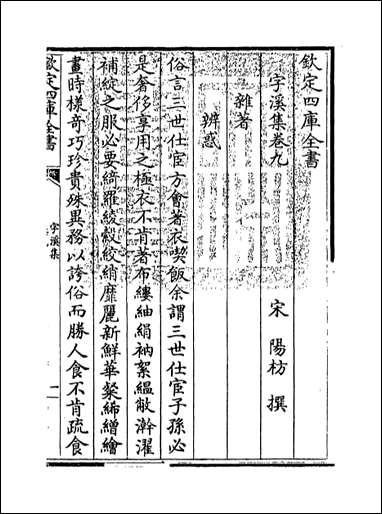 欽定四庫全書
字溪集卷九
宋 陽枋 撰
雜著
辨惑
俗言三世仕宦方會著衣喫飯余謂三世仕宦子孫必
是奢侈享用之極衣不肯著布縷紬絹衲絮緼敝澣濯
補綻之服必要綺羅綾縠絞綃靡麗新鮮華粲絺繒繪
畫時樣奇巧珍貴殊異務以誇俗而勝人食不肯疏食
欽定四庫全書
字溪集